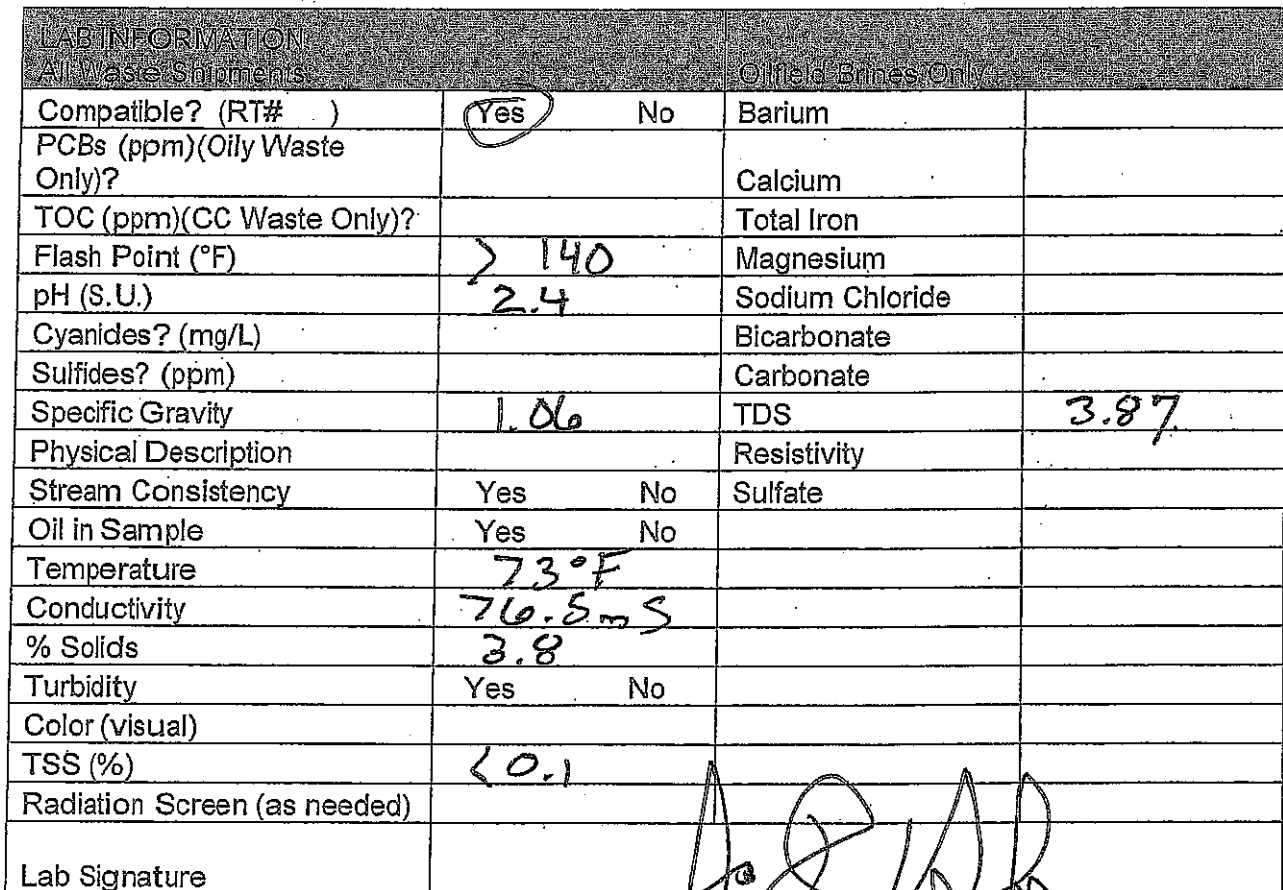 LAB INFORMATION
All Waste Shipments: Oilfield Brines Only
Compatible? (RT# ) Yes No Barium
PCBs (ppm)(Oily Waste
Only)? Calcium
TOC (ppm)(CC Waste Only)? Total Iron
Flash Point (°F) > 140 Magnesium
pH (S.U.) 2.4 Sodium Chloride
Cyanides? (mg/L) Bicarbonate
Sulfides? (ppm) Carbonate
Specific Gravity 1.06 TDS 3.87
Physical Description Resistivity
Stream Consistency Yes No Sulfate
Oil in Sample Yes No
Temperature 73°F
Conductivity 76.5mS
% Solids 3.8
Turbidity Yes No
Color (visual)
TSS (%) <0.1
Radiation Screen (as needed)
Lab Signature